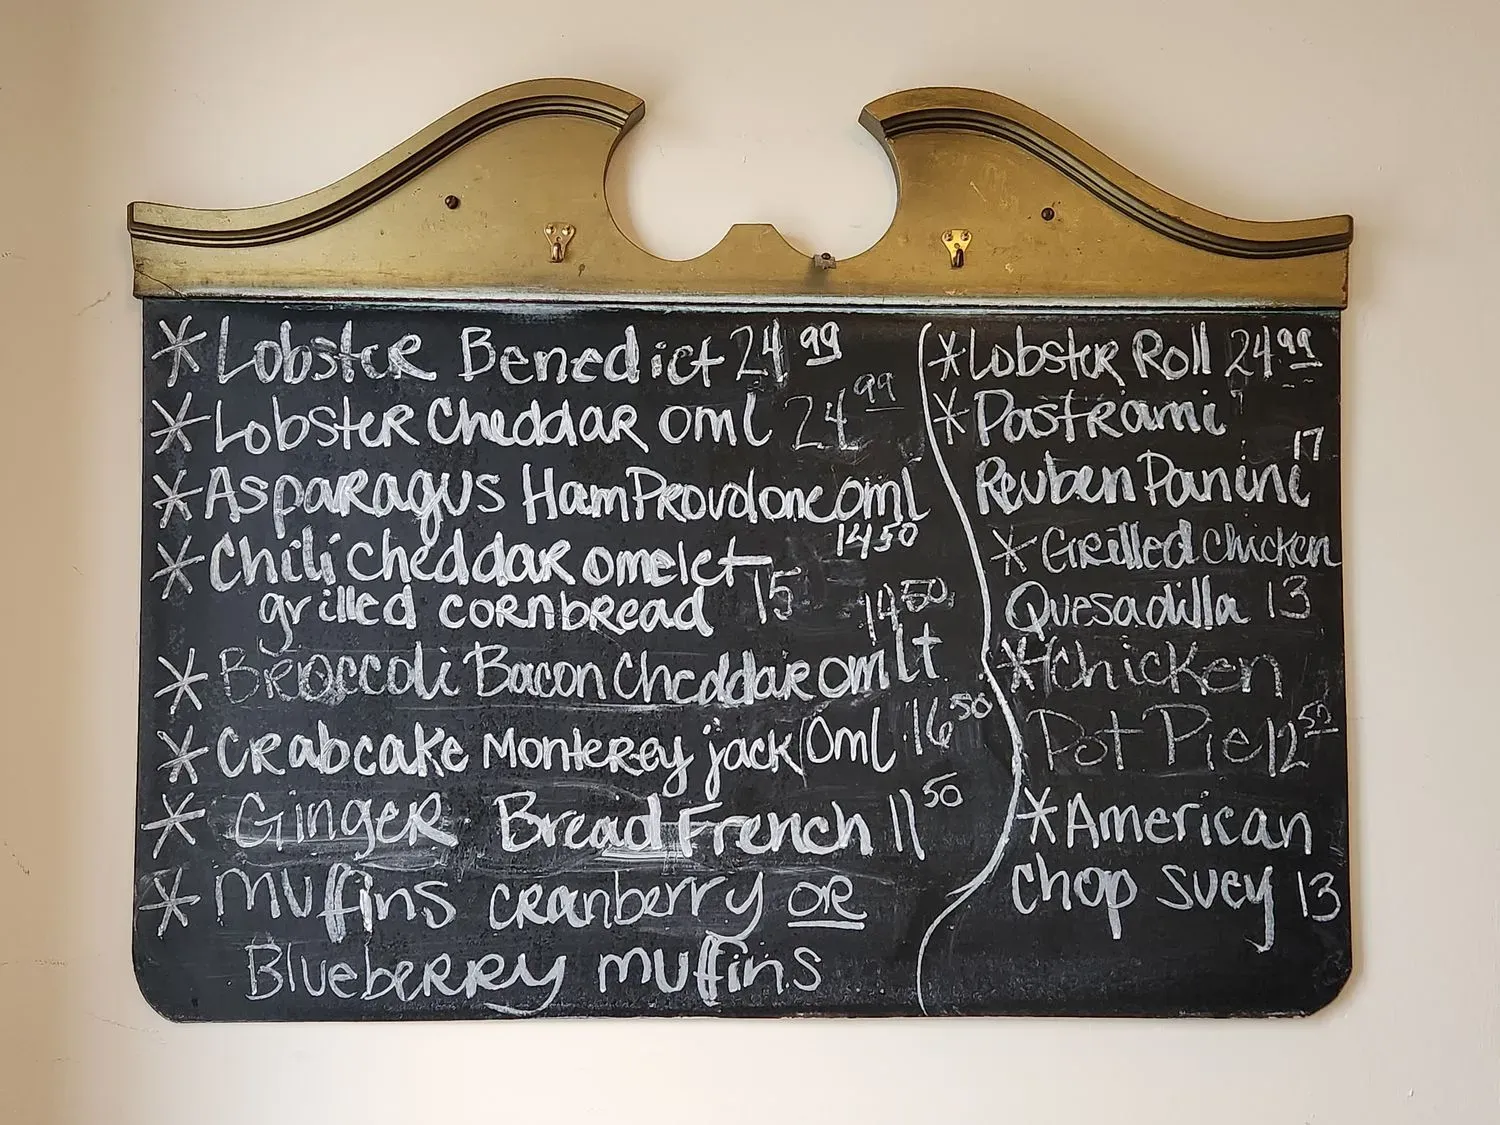 * Lobster Benedict 24 99
* Lobster Cheddar oml 24 99
* Asparagus Ham Provolone oml
14 50
* Chili cheddar omelet 15
grilled cornbread
14 50
* Broccoli Bacon Cheddar omlt
* Crabcake Monterey jack Oml 16 50
* Ginger Bread French 11 50
* muffins cranberry or
Blueberry muffins
* Lobster Roll 24 99
* Pastrami
Reuben Panini 17
* Grilled chicken
Quesadilla 13
* Chicken
Pot Pie 12 50
* American
chop suey 13